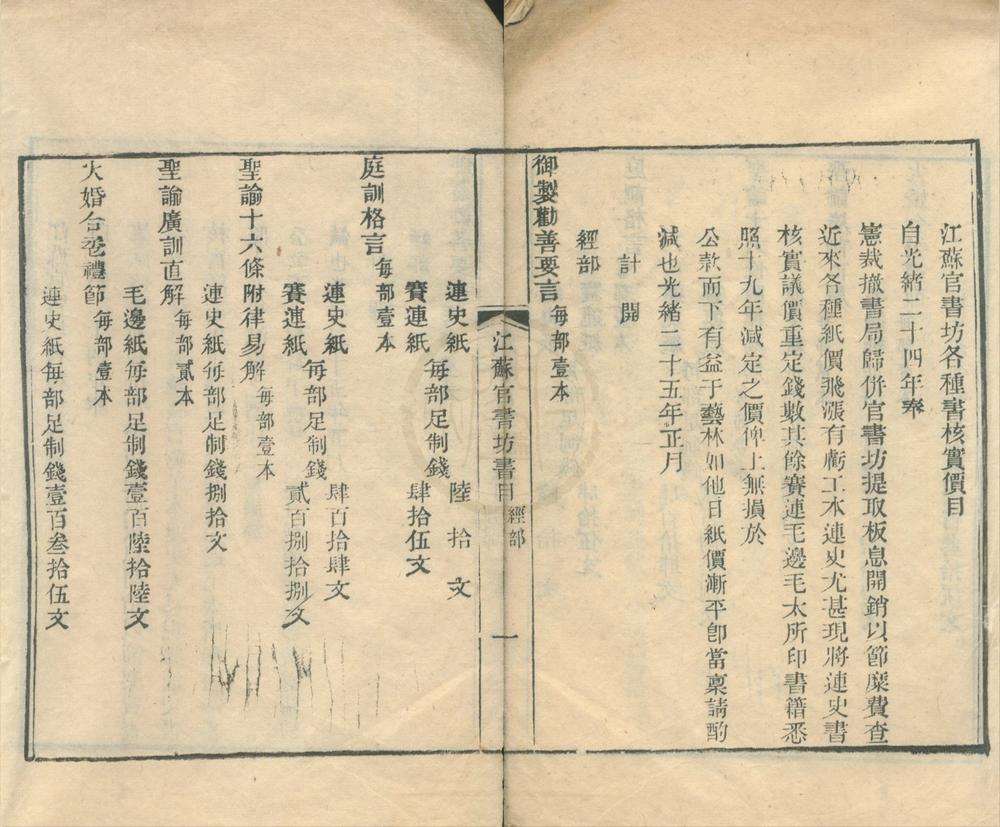 江蘇官書坊各種書核實價目
自光緒二十四年奉
憲裁撤書局歸併官書坊提取板息開銷以節糜費查
近來各種紙價飛漲有虧工本連史尤甚現將連史書
核實議價重定錢數其餘賽連毛邊毛太所印書籍悉
照十九年減定之價俾上無損於
公款而下有益于藝林如他日紙價漸平卽當稟請酌
減也光緒二十五年正月
計開
經部
御製勸善要言每部壹本
江蘇官書坊書目 經部 一
連史紙每部足制錢陸拾文
賽連紙每部足制錢肆拾伍文
庭訓格言每部壹本
連史紙每部足制錢肆百拾肆文
賽連紙每部足制錢貳百捌拾捌文
聖諭十六條附律易解每部壹本
連史紙每部足制錢捌拾文
聖諭廣訓直解每部貳本
毛邊紙每部足制錢壹百陸拾陸文
大婚合卺禮節每部壹本
連史紙每部足制錢壹百叁拾伍文